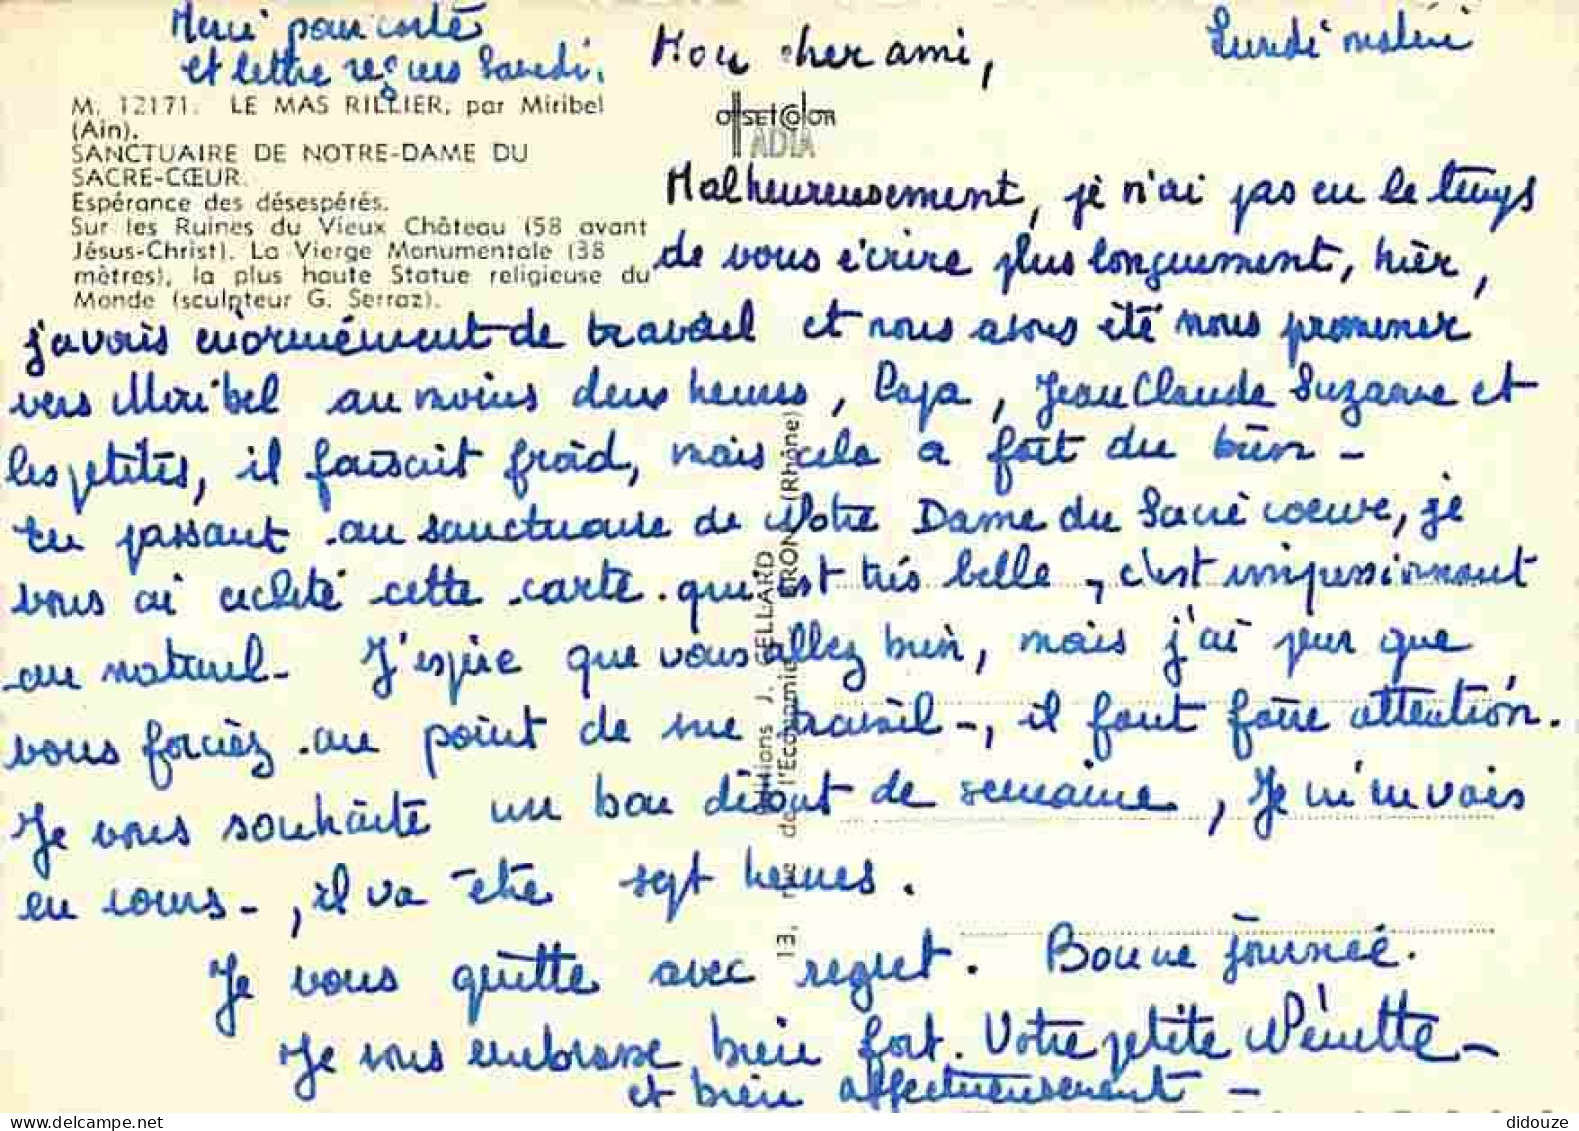 Merci pour carte
et lettre reçues Samedi.
Lundi matin
Mon cher ami,
M. 12171. LE MAS RILLIER, par Miribel
(Ain).
SANCTUAIRE DE NOTRE-DAME DU
SACRE-CŒUR.
Espérance des désespérés.
Sur les Ruines du Vieux Château (58 avant
Jésus-Christ). La Vierge Monumentale (38
mètres), la plus haute Statue religieuse du
Monde (sculpteur G. Serraz).
OffSEt COlOR
ADIA
Malheureusement, je n'ai pas eu le temps
de vous écrire plus longuement, hier,
j'avais énormément de travail et nous avons été nous promener
vers Miribel au moins deux heures, Papa, Jean Claude Suzanne et
les petites, il faisait froid, mais cela a fait du bien -
En passant au sanctuaire de Notre Dame du Sacré coeur, je
vous ai acheté cette carte qui est très belle, c'est impressionnant
au naturel - J'espère que vous allez bien, mais j'ai peur que
vous forciez au point de vue travail -, il faut faire attention.
Je vous souhaite un bon début de semaine, Je m'en vais
en cours -, il va être sept heures.
Je vous quitte avec regret. Bonne journée.
Je vous embrasse bien fort. Votre petite Nénette -
et bien affectueusement -
Editions J. CELLARD
13, rue de l'Economie, BRON (Rhône)
didouze